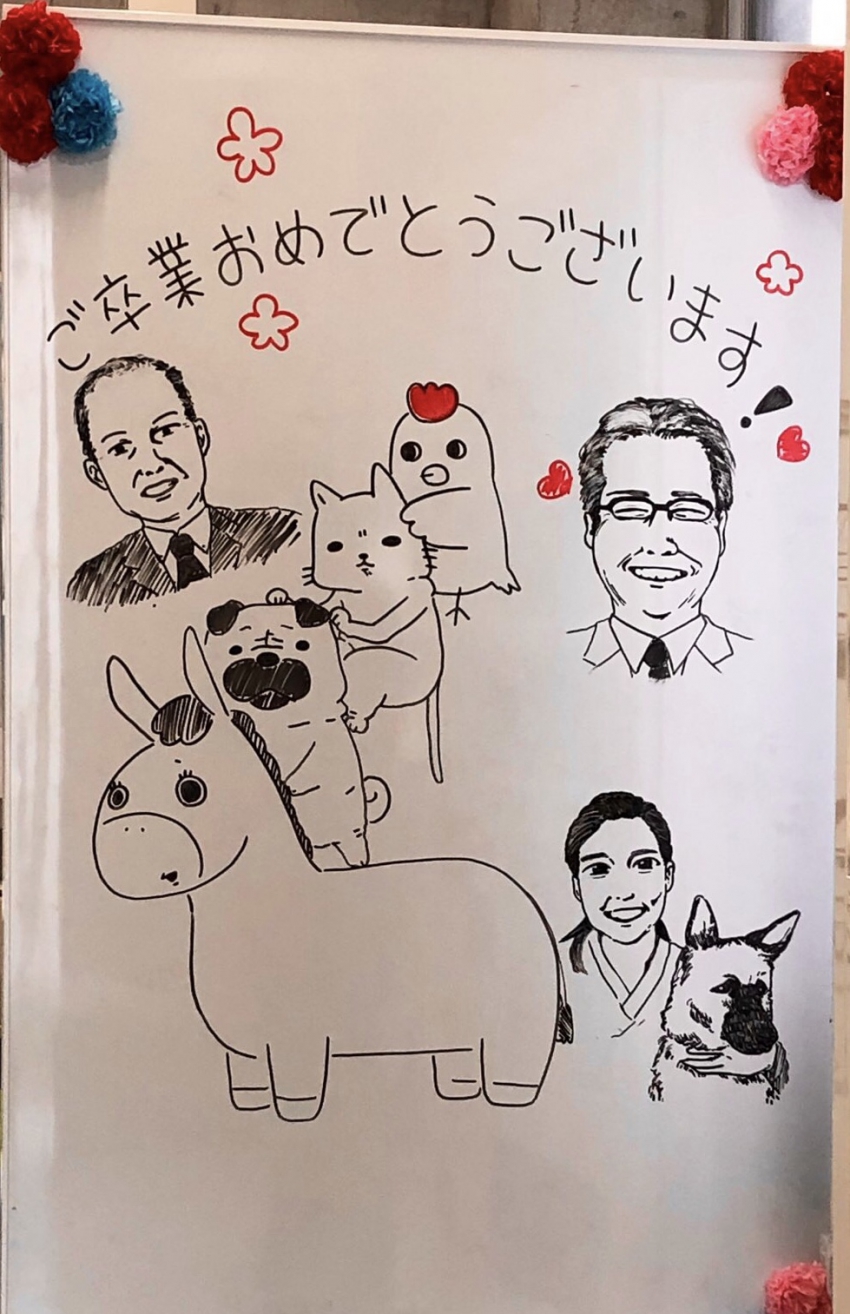 ご卒業おめでとうございます!